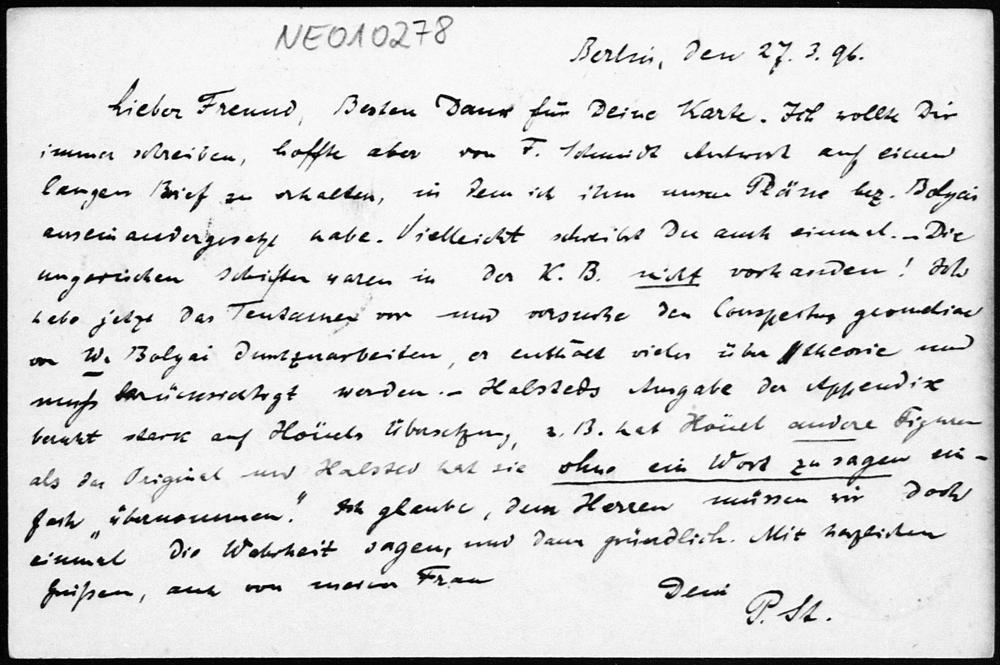 NEO10278
Berlin, den 27.3.96.
Lieber Freund, Besten Dank für Deine Karte. Ich wollte Dir
immer schreiben, hoffte aber von F. Schmidt Antwort auf einen
langen Brief zu erhalten, in dem ich ihm unsere Pläne bez. Bolyai
auseinandergesetzt habe. Vielleicht schreibst Du auch einmal. – Die
ungarischen Schriften waren in der K. B. nicht vorhanden! Ich
habe jetzt das Tentamen vor und versuche den Conspectus geometriae
von W. Bolyai durchzuarbeiten, er enthält vieles über //theorie und
muss berücksichtigt werden. – Halsteds Ausgabe der Appendix
beruht stark auf Hoüels Übersetzung, z. B. hat Hoüel andere Figuren
als das Original und Halsted hat sie ohne ein Wort zu sagen ein-
fach „übernommen“. Ich glaube, dem Herren müssen wir doch
einmal die Wahrheit sagen, und dann gründlich. Mit herzlichen
Grüßen, auch von meiner Frau
Dein
P. St.